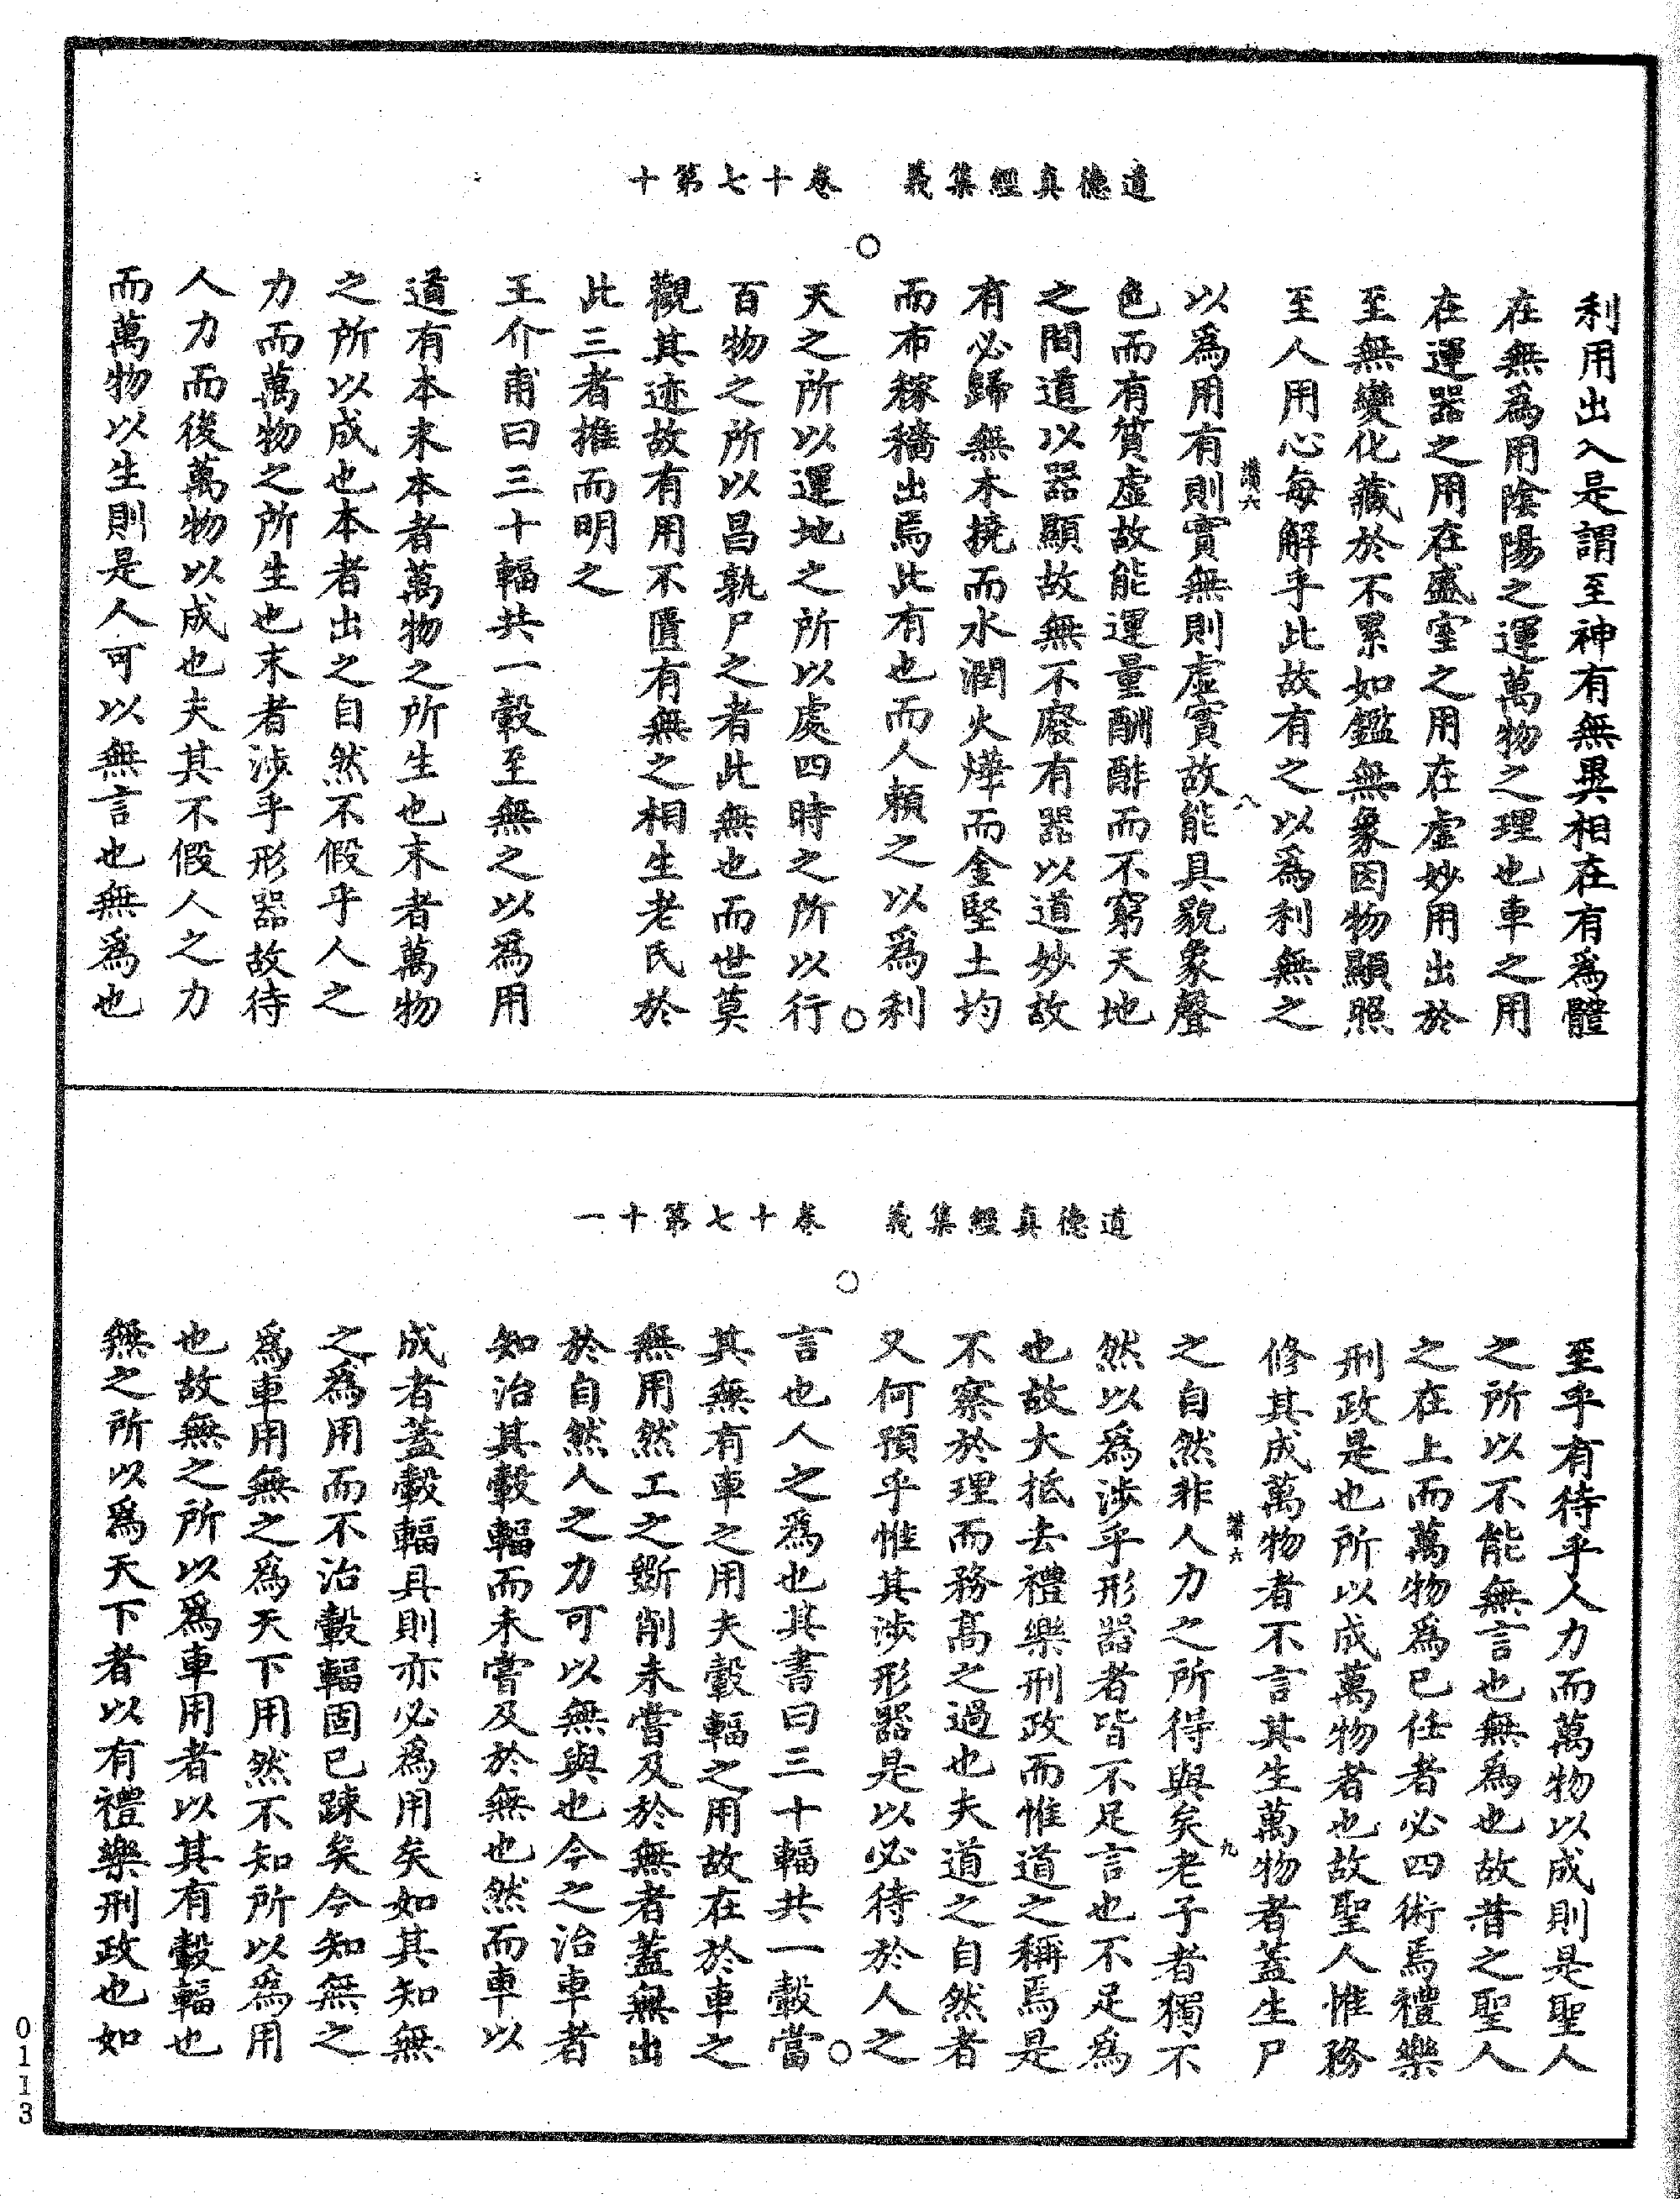 道德真經集義　卷十七第十
利用出入是謂至神有無異相在有爲體
在無爲用陰陽之運萬物之理也車之用
在運器之用在盛室之用在虛妙用出於
至無變化藏於不累如鑑無象因物顯照
至人用心每解乎此故有之以爲利無之
以爲用有則實無則虛實故能具貌象聲
色而有質虛故能運量酬酢而不窮天地
之間道以器顯故無不廢有器以道妙故
有必歸無木撓而水潤火煒而金堅土均
而布稼穡出焉此有也而人賴之以爲利
天之所以運地之所以處四時之所以行
百物之所以昌孰尸之者此無也而世莫
觀其迹故有用不匱有無之相生老氏於
此三者推而明之
王介甫曰三十輻共一轂至無之以爲用
道有本末本者萬物之所生也末者萬物
之所以成也本者出之自然不假乎人之
力而萬物之所生也末者涉乎形器故待
人力而後萬物以成也夫其不假人之力
而萬物以生則是人可以無言也無爲也
道德真經集義　卷十七第十一
至乎有待乎人力而萬物以成則是聖人
之所以不能無言也無爲也故昔之聖人
之在上而萬物爲已任者必四術焉禮樂
刑政是也所以成萬物者也故聖人惟務
修其成萬物者不言其生萬物者蓋生尸
之自然非人力之所得與矣老子者獨不
然以爲涉乎形器者皆不足言也不足爲
也故大抵去禮樂刑政而惟道之稱焉是
不察於理而務高之過也夫道之自然者
又何預乎惟其涉形器是以必待於人之
言也人之爲也其書曰三十輻共一轂當
其無有車之用夫轂輻之用故在於車之
無用然工之斲削未嘗及於無者蓋無出
於自然人之力可以無與也今之治車者
知治其轂輻而未嘗及於無也然而車以
成者蓋轂輻具則亦必爲用矣如其知無
之爲用而不治轂輻固已踈矣今知無之
爲車用無之爲天下用然不知所以爲用
也故無之所以爲車用者以其有轂輻也
無之所以爲天下者以有禮樂刑政也如
八
九
0113